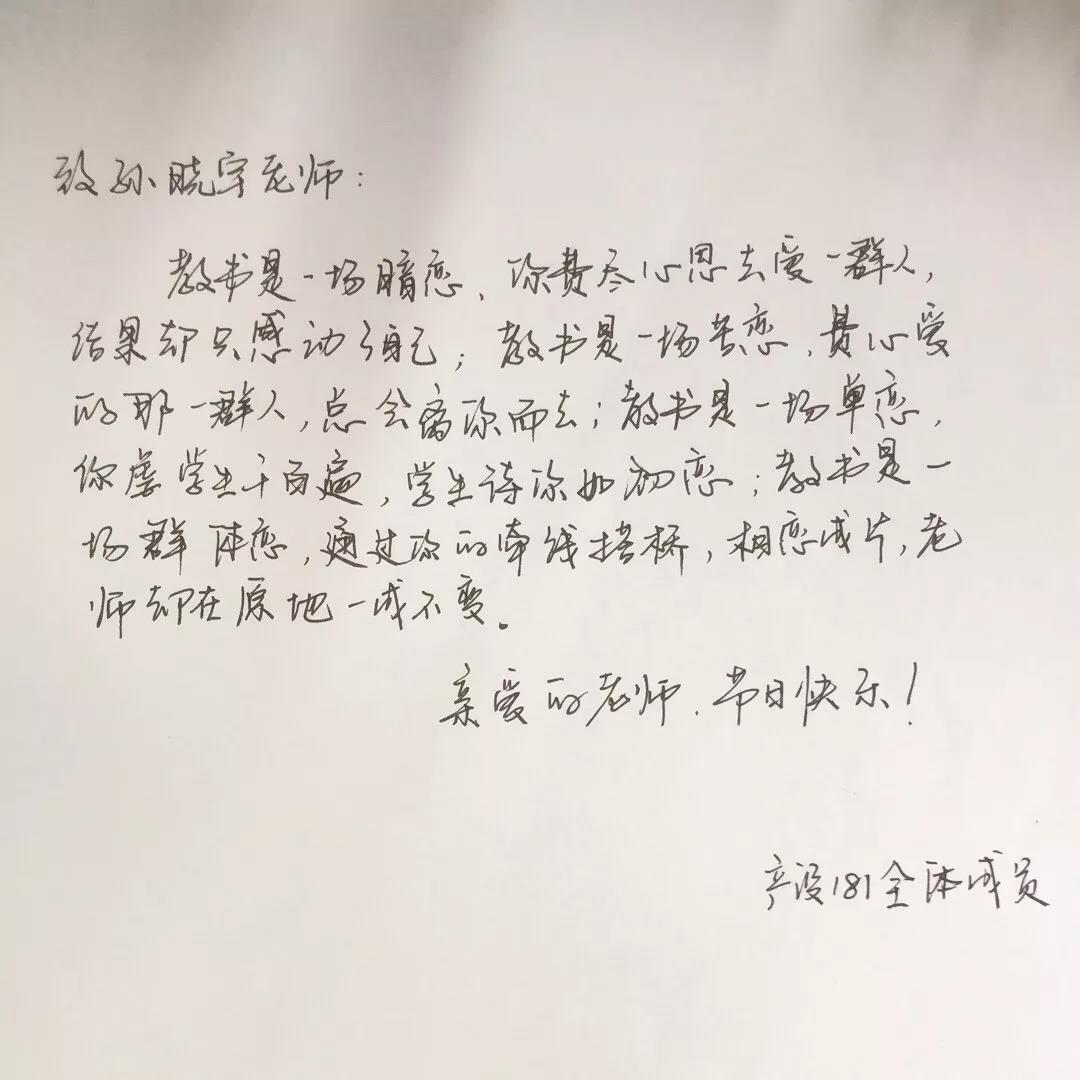 致孙晓宇老师:
教书是一场暗恋、你费尽心思去爱一群人,
结果却只感动了自己;教书是一场苦恋,费心爱
的那一群人,总会离你而去;教书是一场单恋,
你虐学生千百遍,学生待你如初恋;教书是一
场群体恋,通过你的牵线搭桥,相恋成片,老
师却在原地一成不变。
亲爱的老师.节日快乐!
产设181全体成员